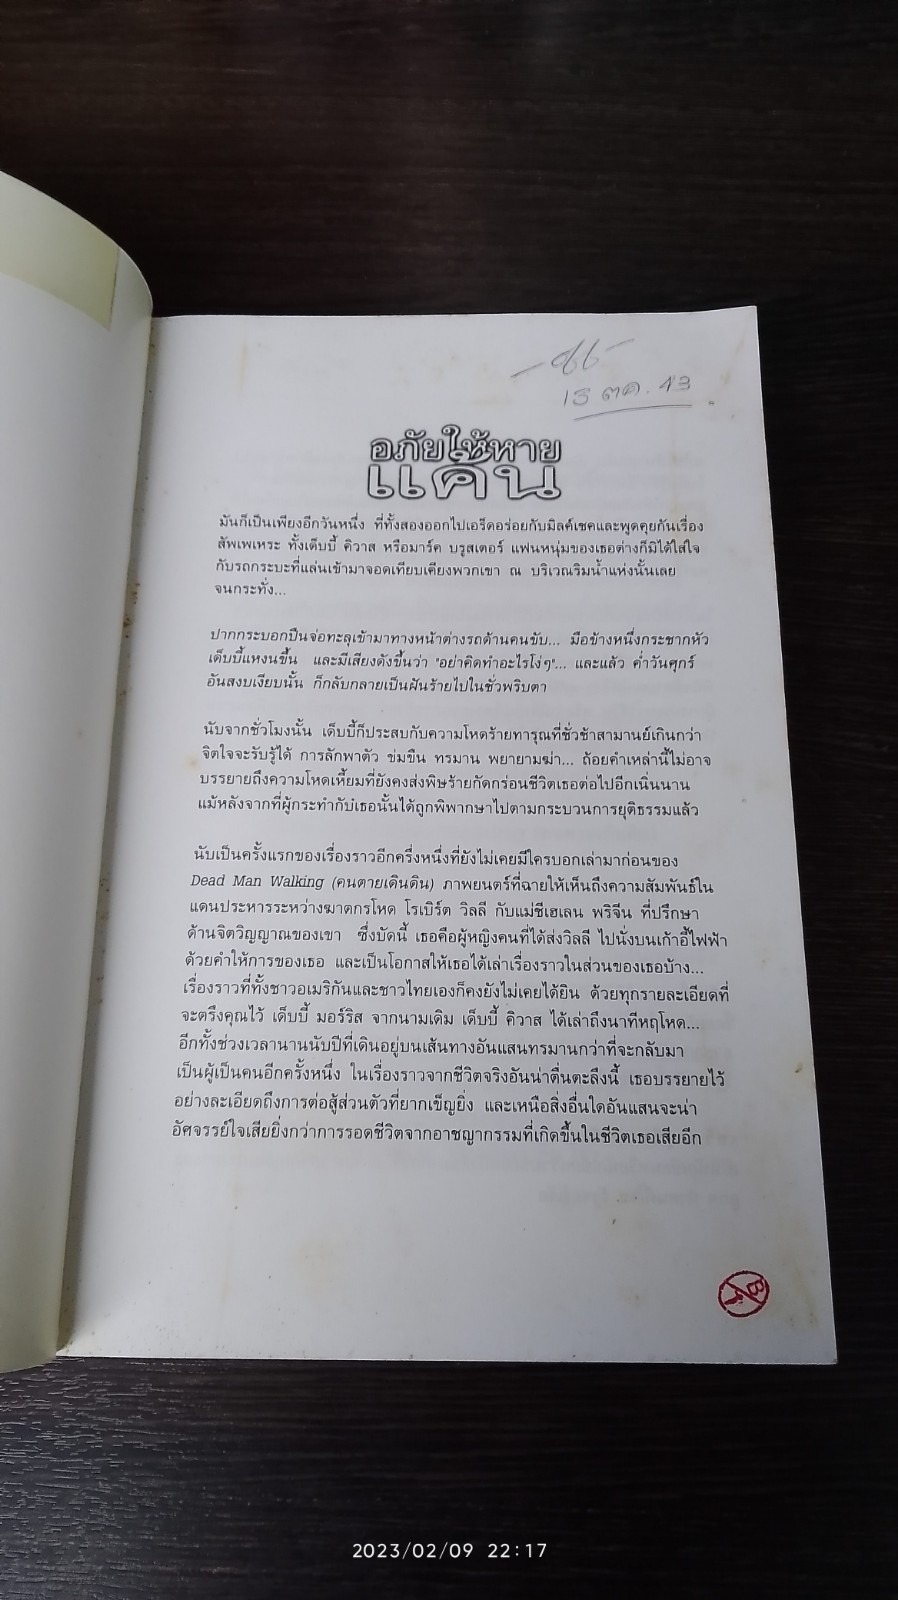 13 ตค. 43
อภัยให้หาย
แค้น
มันก็เป็นเพียงอีกวันหนึ่ง ที่ทั้งสองออกไปเอร็ดอร่อยกับมิลค์เชคและพูดคุยกันเรื่อง
สัพเพเหระ ทั้งเด็บบี้ คิวาส หรือมาร์ค บรูสเตอร์ แฟนหนุ่มของเธอต่างก็มิได้ใส่ใจ
กับรถกระบะที่แล่นเข้ามาจอดเทียบเคียงพวกเขา ณ บริเวณริมน้ำแห่งนั้นเลย
จนกระทั่ง...
ปากกระบอกปืนจ่อทะลุเข้ามาทางหน้าต่างรถด้านคนขับ... มือข้างหนึ่งกระชากหัว
เด็บบี้แหงนขึ้น และมีเสียงดังขึ้นว่า "อย่าคิดทำอะไรโง่ๆ"... และแล้ว ค่ำวันศุกร์
อันสงบเงียบนั้น ก็กลับกลายเป็นฝันร้ายไปในชั่วพริบตา
นับจากชั่วโมงนั้น เด็บบี้ก็ประสบกับความโหดร้ายทารุณที่ชั่วช้าสามานย์เกินกว่า
จิตใจจะรับรู้ได้ การลักพาตัว ข่มขืน ทรมาน พยายามฆ่า... ถ้อยคำเหล่านี้ไม่อาจ
บรรยายถึงความโหดเหี้ยมที่ยังคงส่งพิษร้ายกัดกร่อนชีวิตเธอต่อไปอีกเนิ่นนาน
แม้หลังจากที่ผู้กระทำกับเธอนั้นได้ถูกพิพากษาไปตามกระบวนการยุติธรรมแล้ว
นับเป็นครั้งแรกของเรื่องราวอีกครึ่งหนึ่งที่ยังไม่เคยมีใครบอกเล่ามาก่อนของ
Dead Man Walking (คนตายเดินดิน) ภาพยนตร์ที่ฉายให้เห็นถึงความสัมพันธ์ใน
แดนประหารระหว่างฆาตกรโหด โรเบิร์ต วิลลี กับแม่ชีเฮเลน พริจีน ที่ปรึกษา
ด้านจิตวิญญาณของเขา ซึ่งบัดนี้ เธอคือผู้หญิงคนที่ได้ส่งวิลลี ไปนั่งบนเก้าอี้ไฟฟ้า
ด้วยคำให้การของเธอ และเป็นโอกาสให้เธอได้เล่าเรื่องราวในส่วนของเธอบ้าง...
เรื่องราวที่ทั้งชาวอเมริกันและชาวไทยเองก็คงยังไม่เคยได้ยิน ด้วยทุกรายละเอียดที่
จะตรึงคุณไว้ เด็บบี้ มอร์ริส จากนามเดิม เด็บบี้ คิวาส ได้เล่าถึงนาทีหฤโหด...
อีกทั้งช่วงเวลานานนับปีที่เดินอยู่บนเส้นทางอันแสนทรมานกว่าที่จะกลับมา
เป็นผู้เป็นคนอีกครั้งหนึ่ง ในเรื่องราวจากชีวิตจริงอันน่าตื่นตะลึงนี้ เธอบรรยายไว้
อย่างละเอียดถึงการต่อสู้ส่วนตัวที่ยากเข็ญยิ่ง และเหนือสิ่งอื่นใดอันแสนจะน่า
อัศจรรย์ใจเสียยิ่งกว่าการรอดชีวิตจากอาชญากรรมที่เกิดขึ้นในชีวิตเธอเสียอีก
2023/02/09 22:17